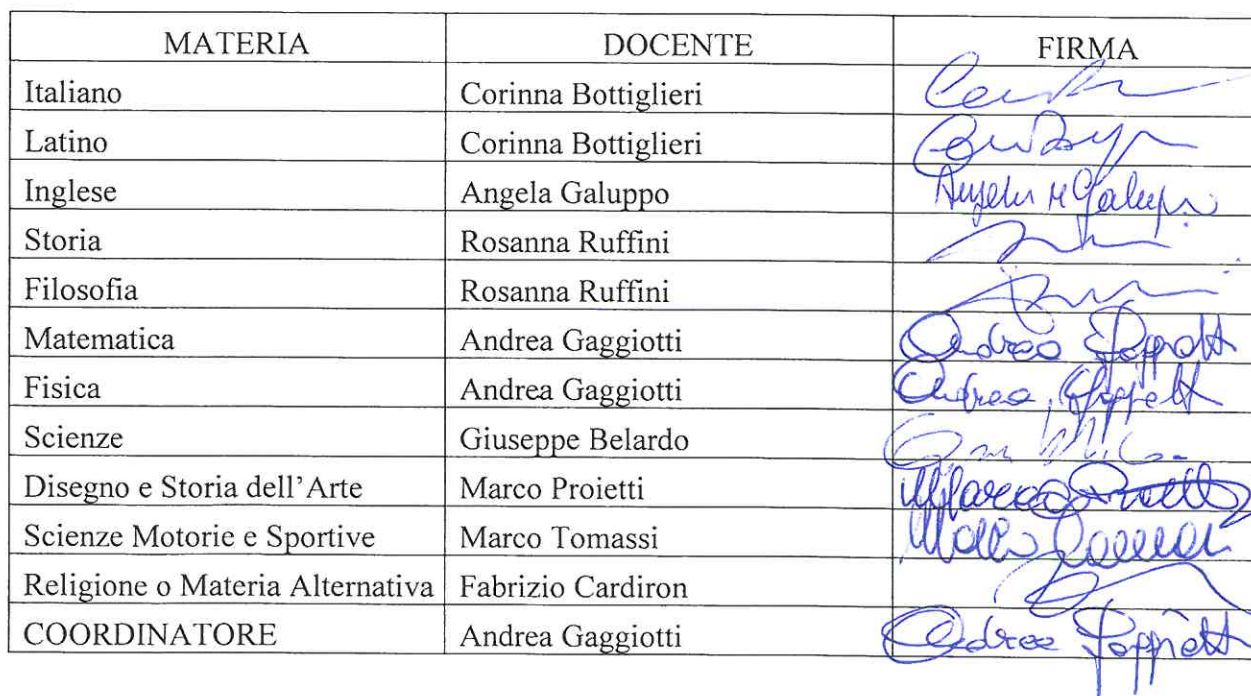 MATERIA DOCENTE FIRMA
Italiano Corinna Bottiglieri
Latino Corinna Bottiglieri
Inglese Angela Galuppo
Storia Rosanna Ruffini
Filosofia Rosanna Ruffini
Matematica Andrea Gaggiotti Andrea
Fisica Andrea Gaggiotti Andrea
Scienze Giuseppe Belardo
Disegno e Storia dell'Arte Marco Proietti Marco
Scienze Motorie e Sportive Marco Tomassi
Religione o Materia Alternativa Fabrizio Cardiron
COORDINATORE Andrea Gaggiotti Andrea